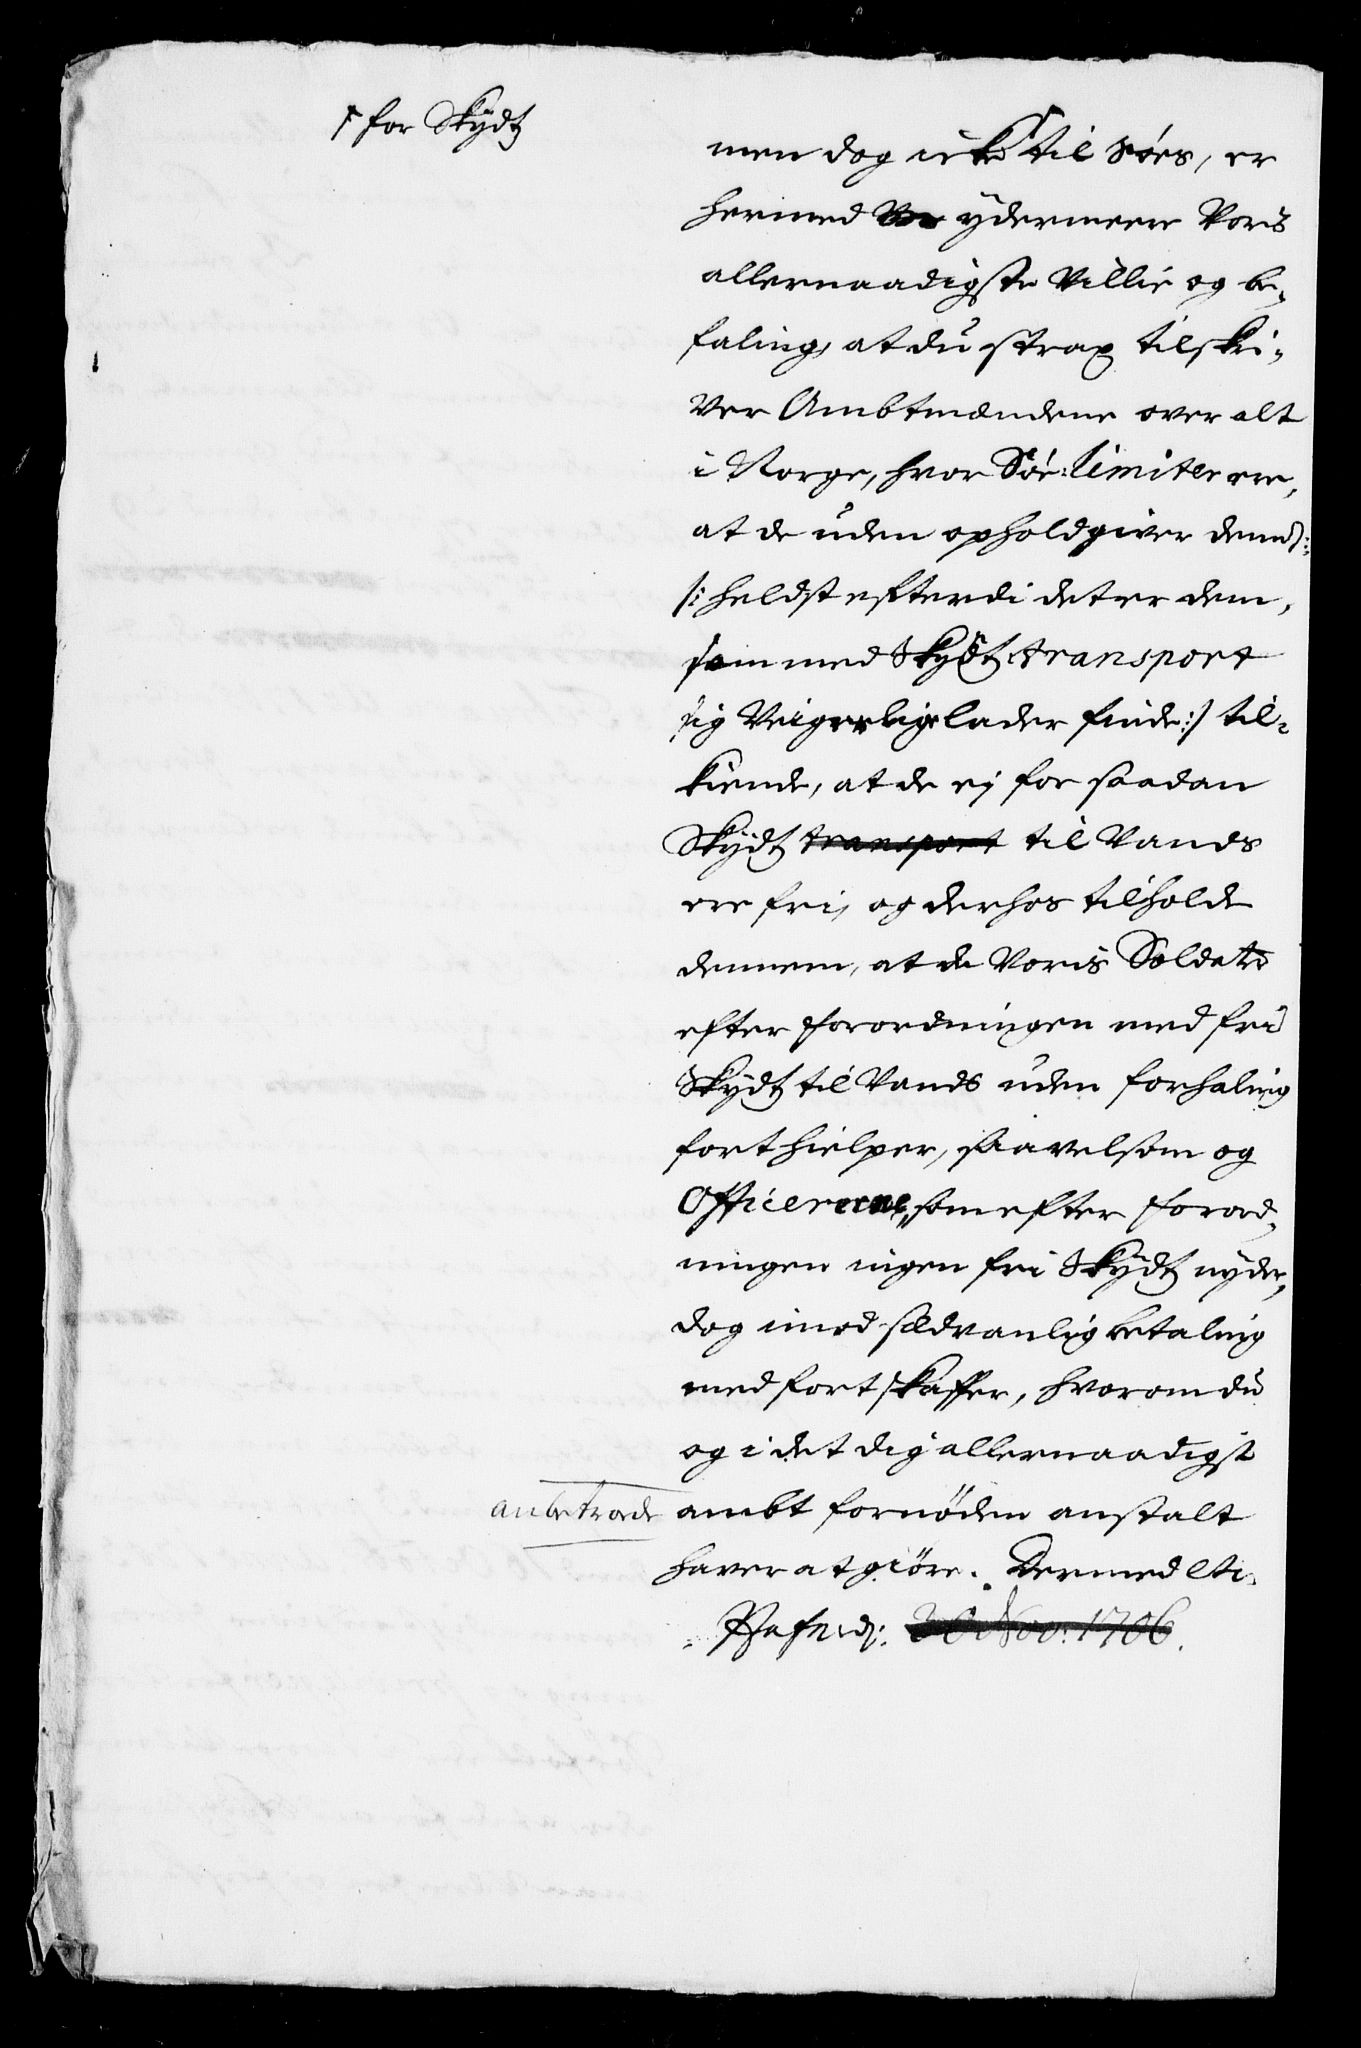 † for Skydtz
men dog icke † til Søes, er
hermed ydermeere Voris
allernaadigste Villie og be-
faling, at du strax tilskri-
ver Ambtmændene over alt
i Norge, hvor Søe-limiter ere,
at de uden ophold giver dennem
/: heldst efterdi det er dem,
som med Skydtz transport
sig Veigerlige lader finde :/ til-
kiende, at de ej for saadan
Skydtz transport til Vands
ere fri, og derhos tilholde
dennem, at de Voris Soldater
efter forordningen med fri
Skydtz til Vands uden forhaling
forthielper, saavelsom og
Officererne, som efter forord-
ningen ingen fri Skydtz nyder,
dog imod sædvanlig betaling
med fortskaffer, hvorom du
og i det dig allernaadigst
anbetroede ambt fornøden anstalt
haver at giøre. Dermed etc.
Hafn. d: 20 Nov: 1706.